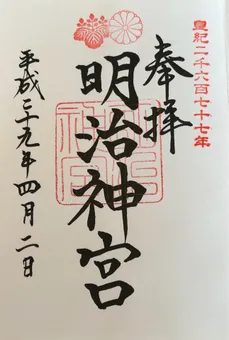 皇紀二千六百七十七年
奉拝
明治神宮
平成二十九年四月二日